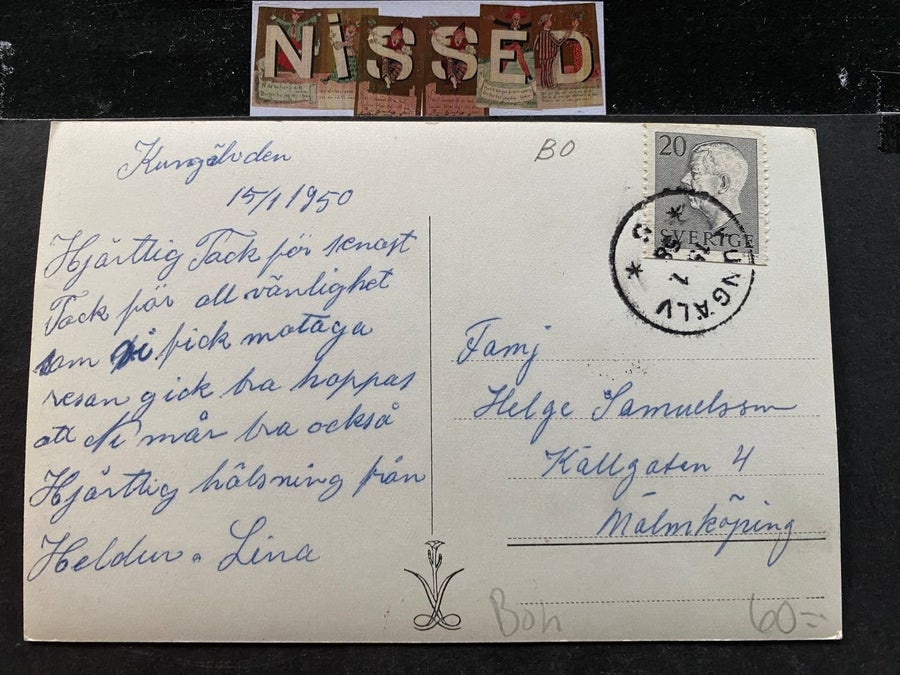 NISSED
Kungälv den
15/1 1950
Hjärttlig Tack för senast
Tack för all vänlighet
som vi fick mataga
resan gick bra hoppas
att Ni mår bra också
Hjärttlig hälsning från
Heldur o Lina
BO
20
SVERIGE
KUNGÄLV
Famj
Helge Samuelsson
Källgaten 4
Malmköping
Boh
60:-